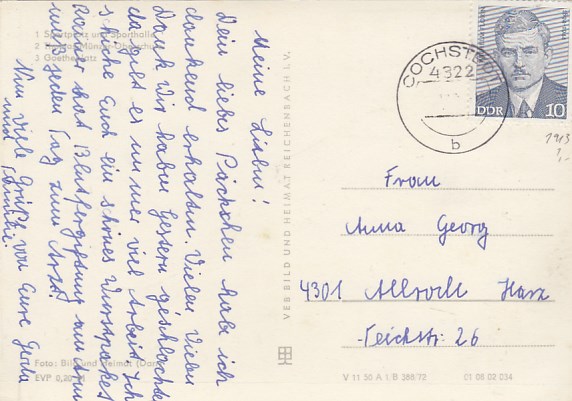 1 Sportplatz und Sporthalle
2 Thomas-Müntzer-Oberschule
3 Goetheplatz
Meine Lieben!
Dein liebes Päckchen habe ich
dankend erhalten. Vielen Vielen
Dank Wir haben Gestern geschlachtet
da gibt es immer viel Arbeit Ich
schicke Euch ein schönes Wurstpaket
Werner hat Blutvergiftung am Arm
muß jeden Tag zum Arzt.
Nun Viele Grüße von Eure Gerda
und
Foto: Bild und Heimat
EVP 0,20 M
VEB BILD UND HEIMAT REICHENBACH I. V.
COCHSTEDT
4322
b
DDR 10
1913
1,-
Frau
Anna Georg
4301 Allrode Harz
Teichstr. 26
V 11 50 A 1/B 388/72 01 08 02 034